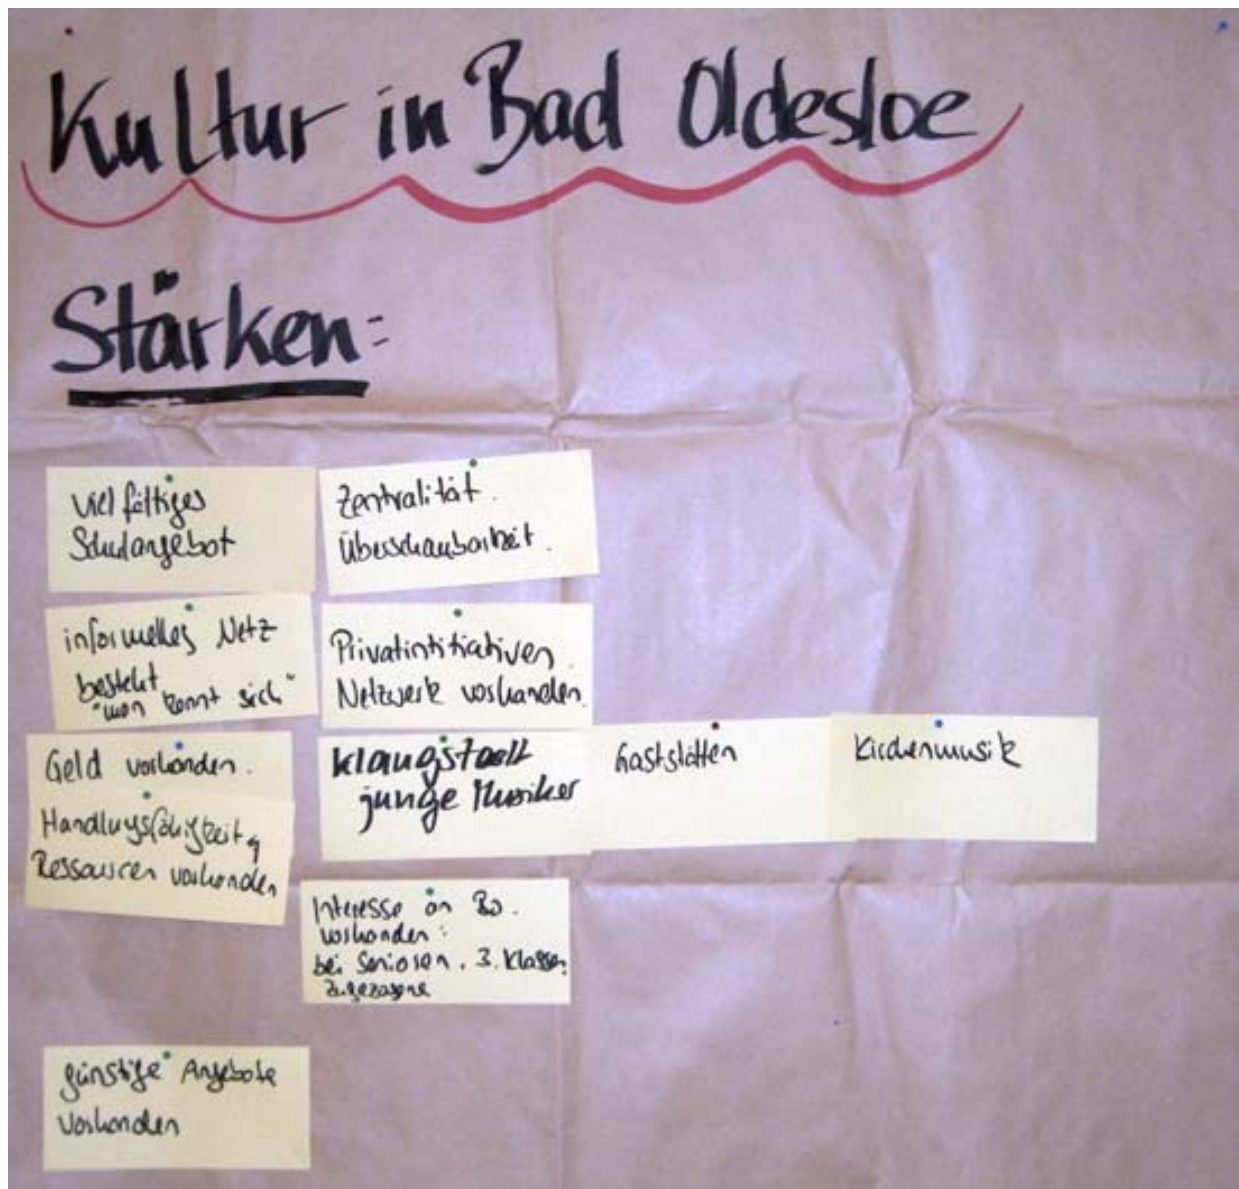 Kultur in Bad Oldesloe
Stärken:
vielfältiges
Schulangebot
Zentralität.
Überschaubarkeit.
informelles Netz
besteht
"man kennt sich"
Privatintitiativen
Netzwerk vorhanden.
Geld vorhanden.
Handlungsfähigkeit
Ressourcen vorhanden
Klangstadt
junge Musiker
Gaststätten
Kirchenmusik
Interesse an
vorhanden:
bei Senioren, 3. Klassen,
Zugezogene
günstige Angebote
vorhanden